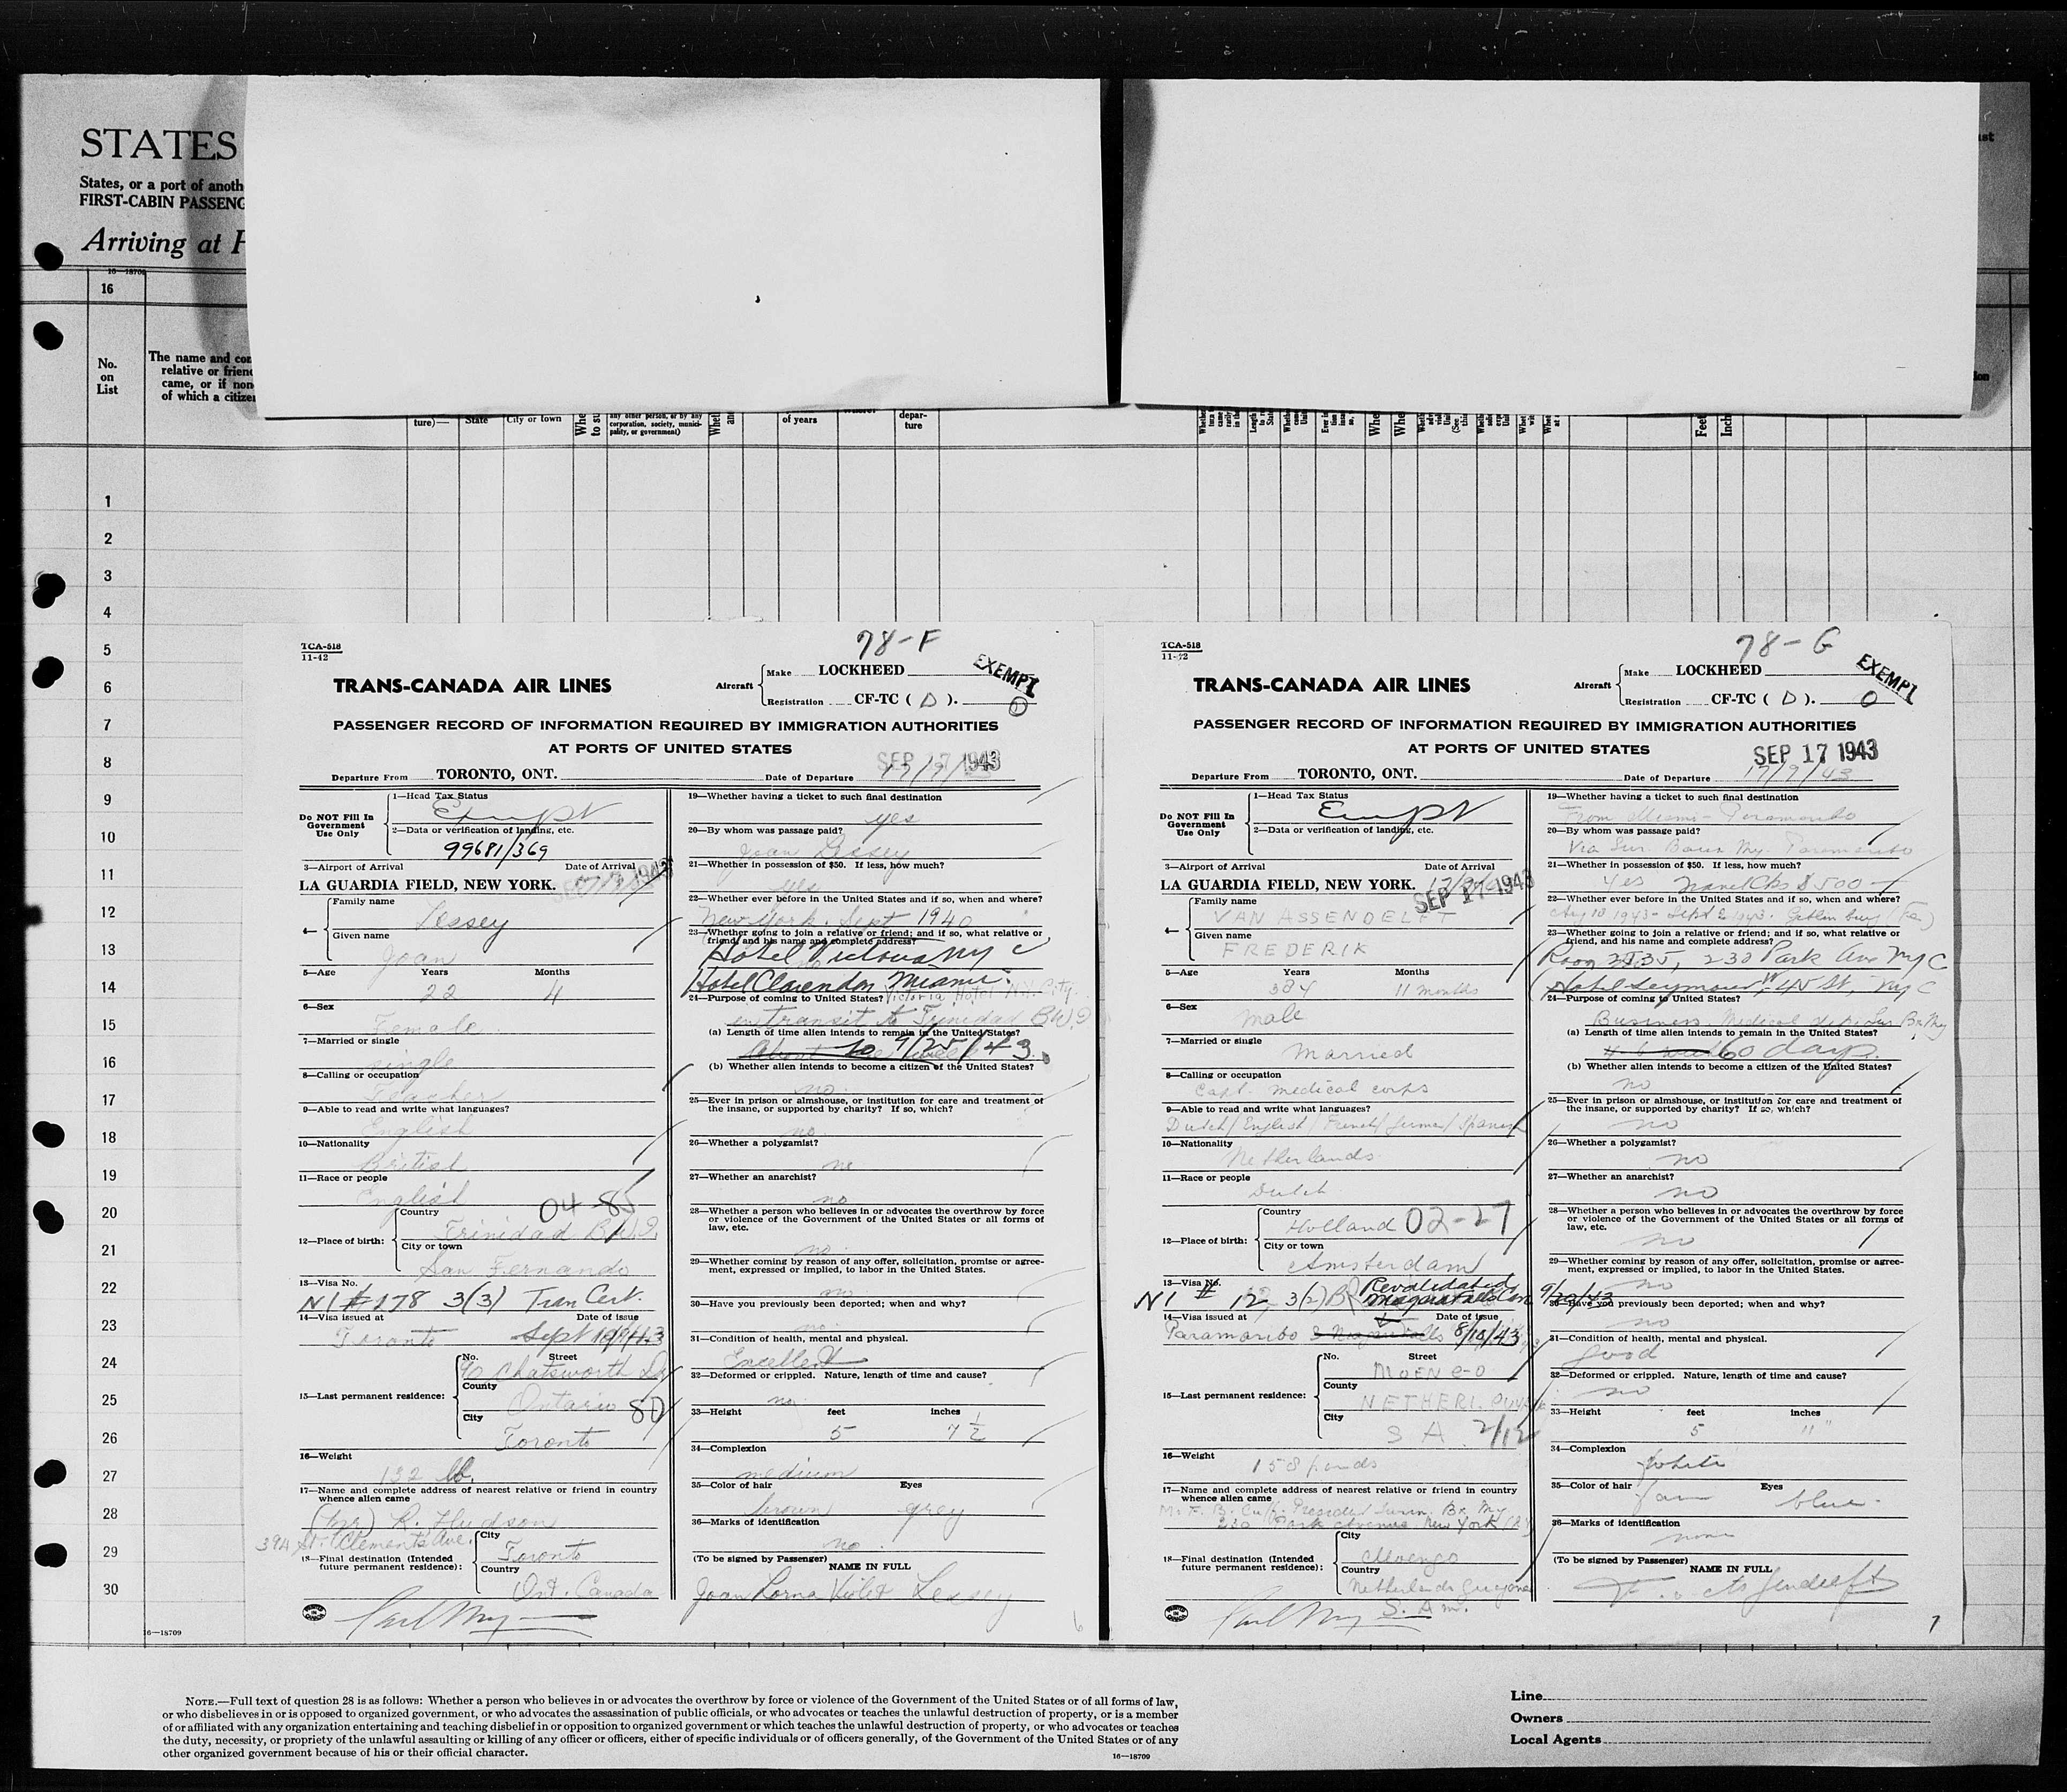 STATES
States, or a port of anoth
FIRST-CABIN PASSENG
Arriving at
16—18709
16
No.
on
List
The name and
relative or frien
came, or if non
of which a citize
ture)—
State
City or town
any other person, or by any
corporation, society, munici-
pality, or government)
of years
depar-
ture
Feet
1
2
3
4
5
6
7
8
9
10
11
12
13
14
15
16
17
18
19
20
21
22
23
24
25
26
27
28
29
30
16—18709
78-F
TCA-518
11-42
TRANS-CANADA AIR LINES
Aircraft
Make LOCKHEED
Registration CF-TC ( D ).
EXEMPT
PASSENGER RECORD OF INFORMATION REQUIRED BY IMMIGRATION AUTHORITIES
AT PORTS OF UNITED STATES
SEP 17 1943
Departure From TORONTO, ONT. Date of Departure 17/9/43
Do NOT Fill In
Government
Use Only
1—Head Tax Status
Exempt
2—Data or verification of landing, etc.
99681/369
3—Airport of Arrival Date of Arrival
LA GUARDIA FIELD, NEW YORK.
4—
Family name
Lessey
Given name
Joan
5—Age Years Months
22 4
6—Sex
Female
7—Married or single
single
8—Calling or occupation
Teacher
9—Able to read and write what languages?
English
10—Nationality
British
11—Race or people
English
04-85
12—Place of birth:
Country
Trinidad B.W.I.
City or town
San Fernando
13—Visa No.
NI # 178 3(3) Tran Cert.
14—Visa issued at Date of issue
Toronto Sept
15—Last permanent residence:
No. Street
90 Chatsworth Dr
County
Ontario 80
City
Toronto
16—Weight
132 lb.
17—Name and complete address of nearest relative or friend in country
whence alien came
R. Hudson
394 St. Clements Ave.
18—Final destination (Intended
future permanent residence):
City
Toronto
Country
Ont. Canada
19—Whether having a ticket to such final destination
yes
20—By whom was passage paid?
Joan Lessey
21—Whether in possession of $50. If less, how much?
yes
22—Whether ever before in the United States and if so, when and where?
New York. Sept 1940
23—Whether going to join a relative or friend; and if so, what relative or
friend, and his name and complete address?
Hotel Victoria NYC
Hotel Clarendon Miami.
24—Purpose of coming to United States? Victoria Hotel N.Y. City.
in transit to Trinidad B.W.I
(a) Length of time alien intends to remain in the United States?
9/25/43.
(b) Whether alien intends to become a citizen of the United States?
no.
25—Ever in prison or almshouse, or institution for care and treatment of
the insane, or supported by charity? If so, which?
no
26—Whether a polygamist?
no
27—Whether an anarchist?
no
28—Whether a person who believes in or advocates the overthrow by force
or violence of the Government of the United States or all forms of
law, etc.
no.
29—Whether coming by reason of any offer, solicitation, promise or agree-
ment, expressed or implied, to labor in the United States.
no
30—Have you previously been deported; when and why?
no.
31—Condition of health, mental and physical.
Excellent
32—Deformed or crippled. Nature, length of time and cause?
no
33—Height feet inches
5 7 1/2
34—Complexion
medium
35—Color of hair Eyes
brown grey
36—Marks of identification
no
(To be signed by Passenger) NAME IN FULL
Joan Lorna Violet Lessey
6
78-G
TCA-518
TRANS-CANADA AIR LINES
Aircraft
Make LOCKHEED
Registration CF-TC ( D ). 0
EXEMPT
PASSENGER RECORD OF INFORMATION REQUIRED BY IMMIGRATION AUTHORITIES
AT PORTS OF UNITED STATES
SEP 17 1943
Departure From TORONTO, ONT. Date of Departure 17/9/43
Do NOT Fill In
Government
Use Only
1—Head Tax Status
Exempt
2—Data or verification of landing, etc.
3—Airport of Arrival Date of Arrival
LA GUARDIA FIELD, NEW YORK.
SEP 17 1943
4—
Family name
VAN ASSENDELFT
Given name
FREDERIK
5—Age Years Months
38 11 months
6—Sex
Male
7—Married or single
Married
8—Calling or occupation
Capt. medical corps
9—Able to read and write what languages?
Dutch/English/French/German/Spanish
10—Nationality
Netherlands
11—Race or people
Dutch
12—Place of birth:
Country
Holland 02-27
City or town
Amsterdam
13—Visa No.
NI # 12 3(2) Revalidated
Niagara Falls Can 9/20/43
14—Visa issued at Date of issue
Paramaribo 8/10/43
15—Last permanent residence:
No. Street
MOENGO
County
NETHERL.
City
S A 2/12
16—Weight
158
17—Name and complete address of nearest relative or friend in country
whence alien came
President Surin. Bx. My
230 Park Avenue New York
18—Final destination (Intended
future permanent residence):
City
Moengo
Country
Netherlands
S. Am.
19—Whether having a ticket to such final destination
From Miami- Paramaribo
20—By whom was passage paid?
Via Sur. Baux My. Paramaribo
21—Whether in possession of $50. If less, how much?
yes $500
22—Whether ever before in the United States and if so, when and where?
Aug 10 1943- Sept 2 1943.
23—Whether going to join a relative or friend; and if so, what relative or
friend, and his name and complete address?
Room 230 Park Ave NYC
Hotel Seymour, W 45 St, NYC
24—Purpose of coming to United States?
Business Medical
(a) Length of time alien intends to remain in the United States?
60 days.
(b) Whether alien intends to become a citizen of the United States?
no
25—Ever in prison or almshouse, or institution for care and treatment of
the insane, or supported by charity? If so, which?
no
26—Whether a polygamist?
no
27—Whether an anarchist?
no
28—Whether a person who believes in or advocates the overthrow by force
or violence of the Government of the United States or all forms of
law, etc.
no
29—Whether coming by reason of any offer, solicitation, promise or agree-
ment, expressed or implied, to labor in the United States.
no
30—Have you previously been deported; when and why?
no
31—Condition of health, mental and physical.
good
32—Deformed or crippled. Nature, length of time and cause?
no
33—Height feet inches
5 11
34—Complexion
white
35—Color of hair Eyes
blue.
36—Marks of identification
none
(To be signed by Passenger) NAME IN FULL
7
NOTE.—Full text of question 28 is as follows: Whether a person who believes in or advocates the overthrow by force or violence of the Government of the United States or of all forms of law,
or who disbelieves in or is opposed to organized government, or who advocates the assassination of public officials, or who advocates or teaches the unlawful destruction of property, or is a member
of or affiliated with any organization entertaining and teaching disbelief in or opposition to organized government or which teaches the unlawful destruction of property, or who advocates or teaches
the duty, necessity, or propriety of the unlawful assaulting or killing of any officer or officers, either of specific individuals or of officers generally, of the Government of the United States or of any
other organized government because of his or their official character.
16—18709
Line
Owners
Local Agents